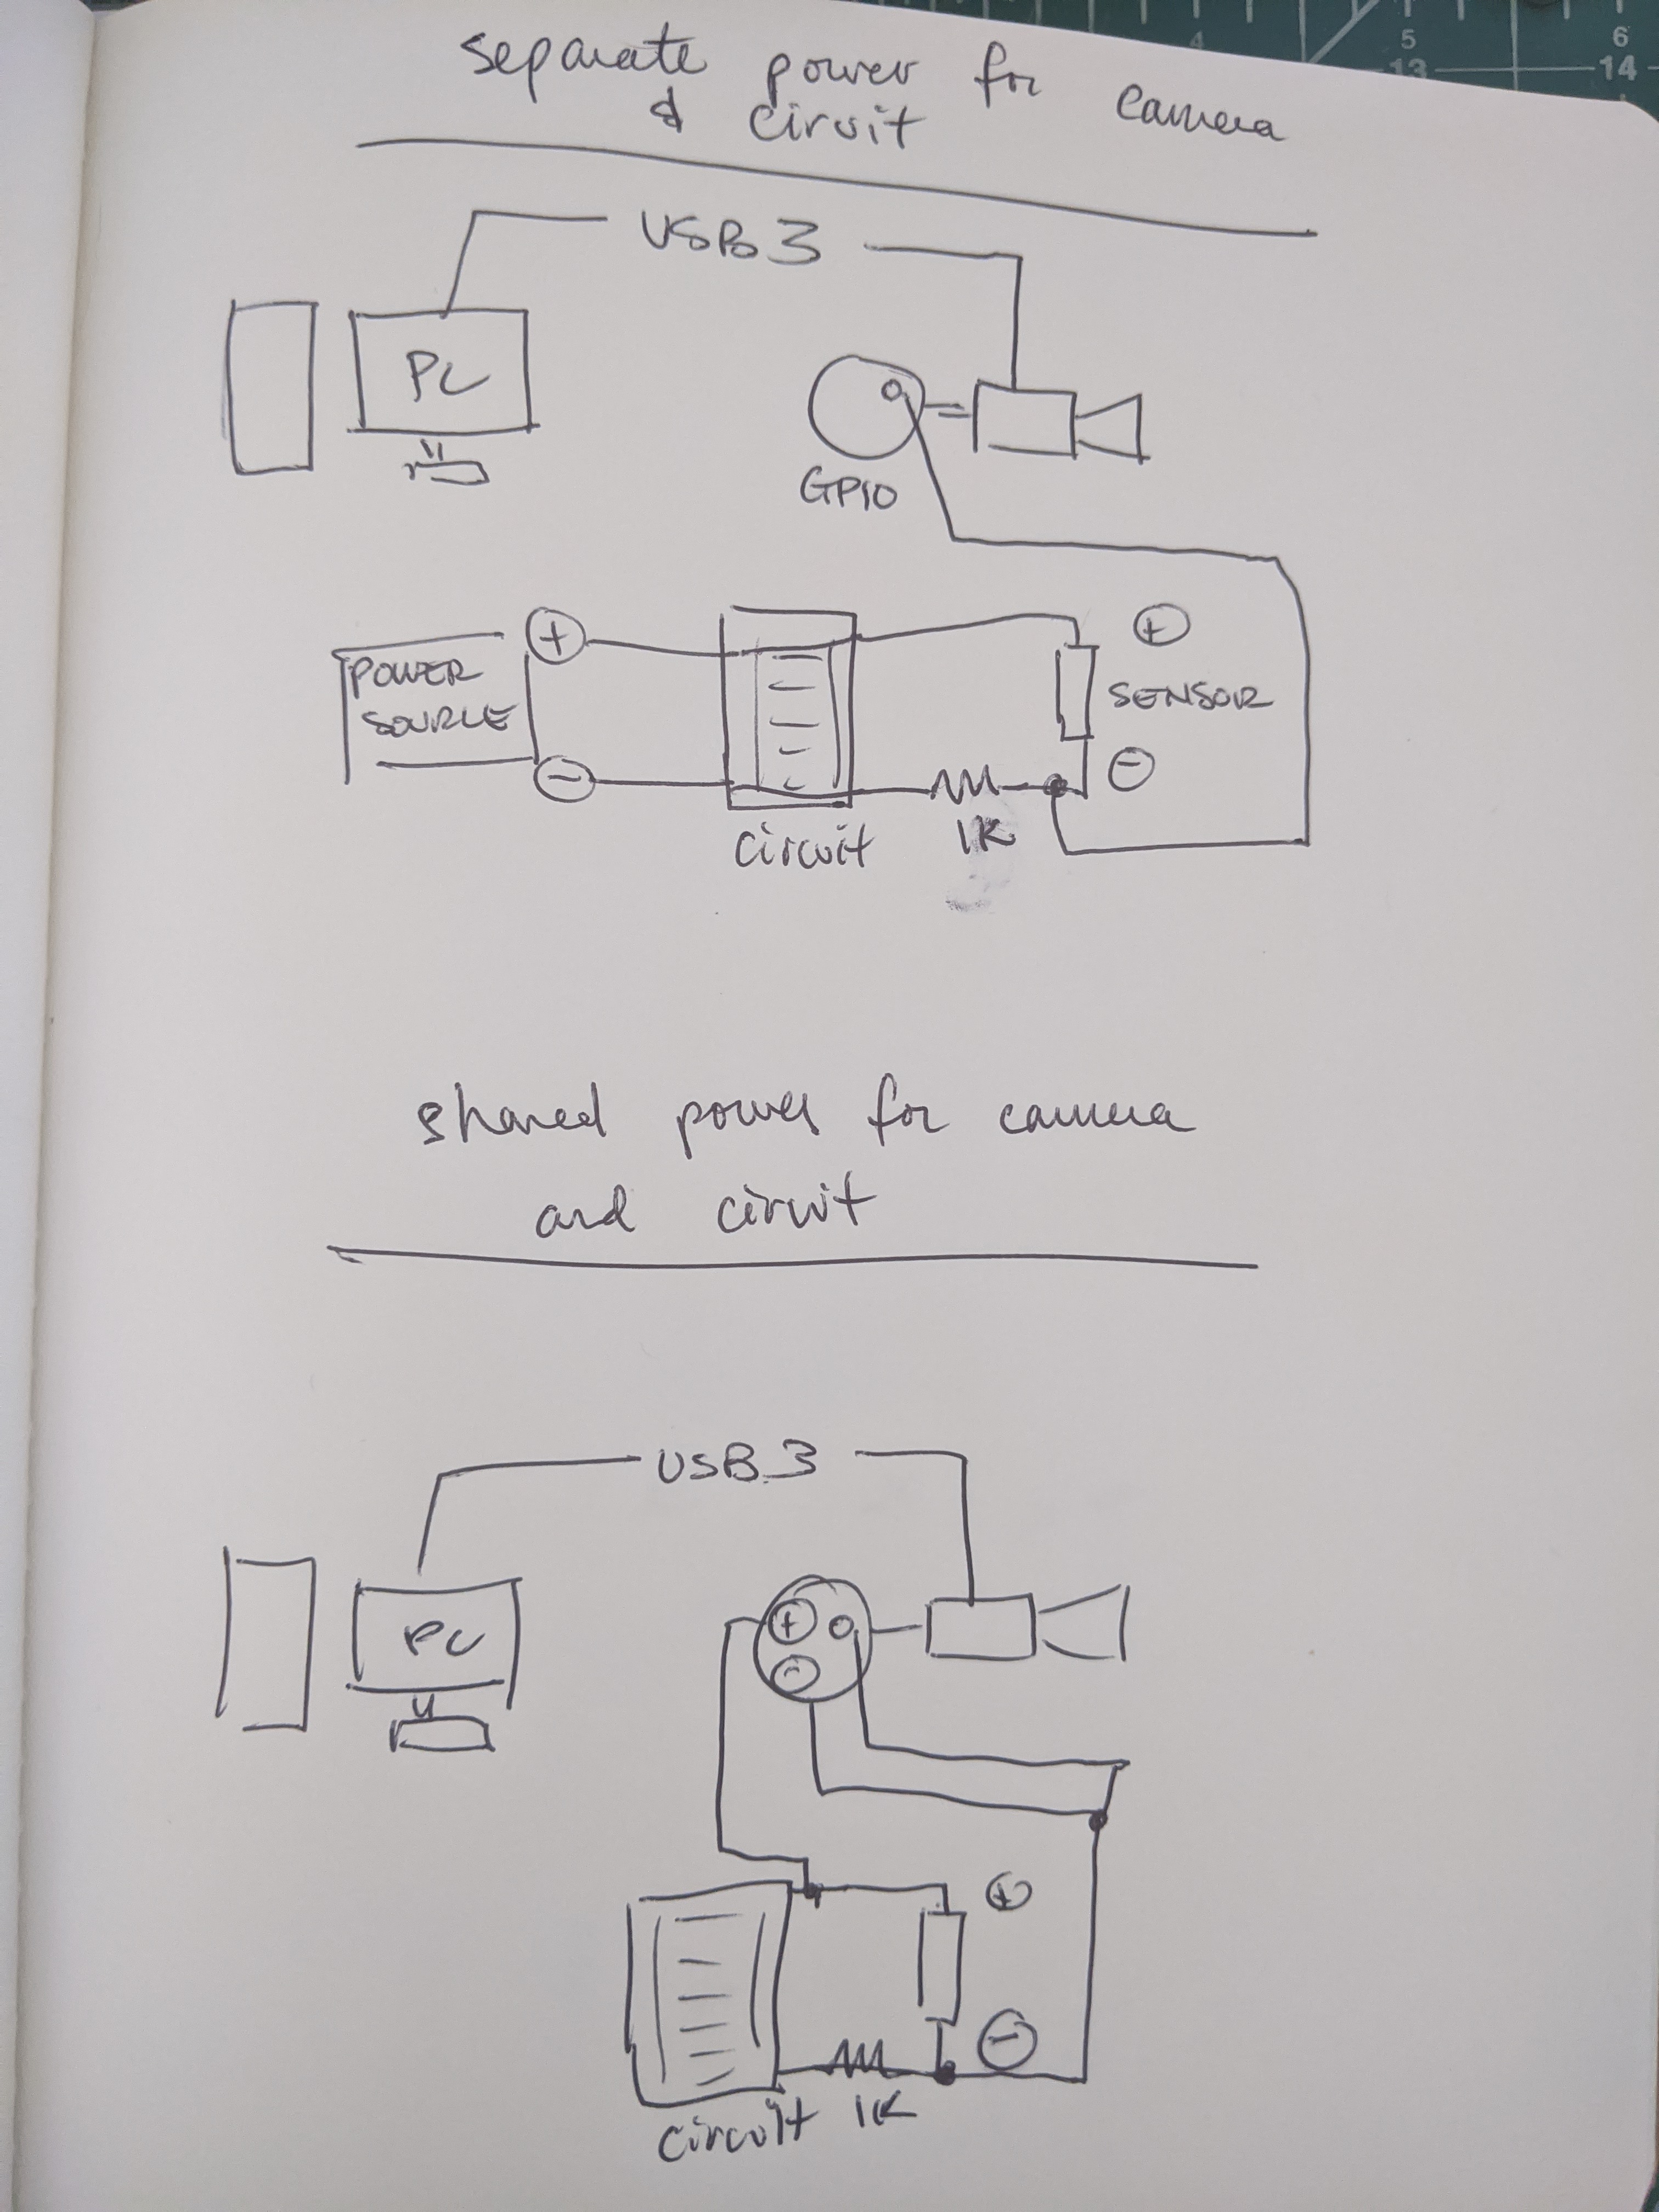 separate power for camera
& ciruit
USB 3
PC
GPIO
+
POWER
SOURCE
+
SENSOR
-
-
circuit
1K
shared power for camera
and circuit
USB 3
PC
+
-
+
-
circuit
1K
4
5
6
13
14